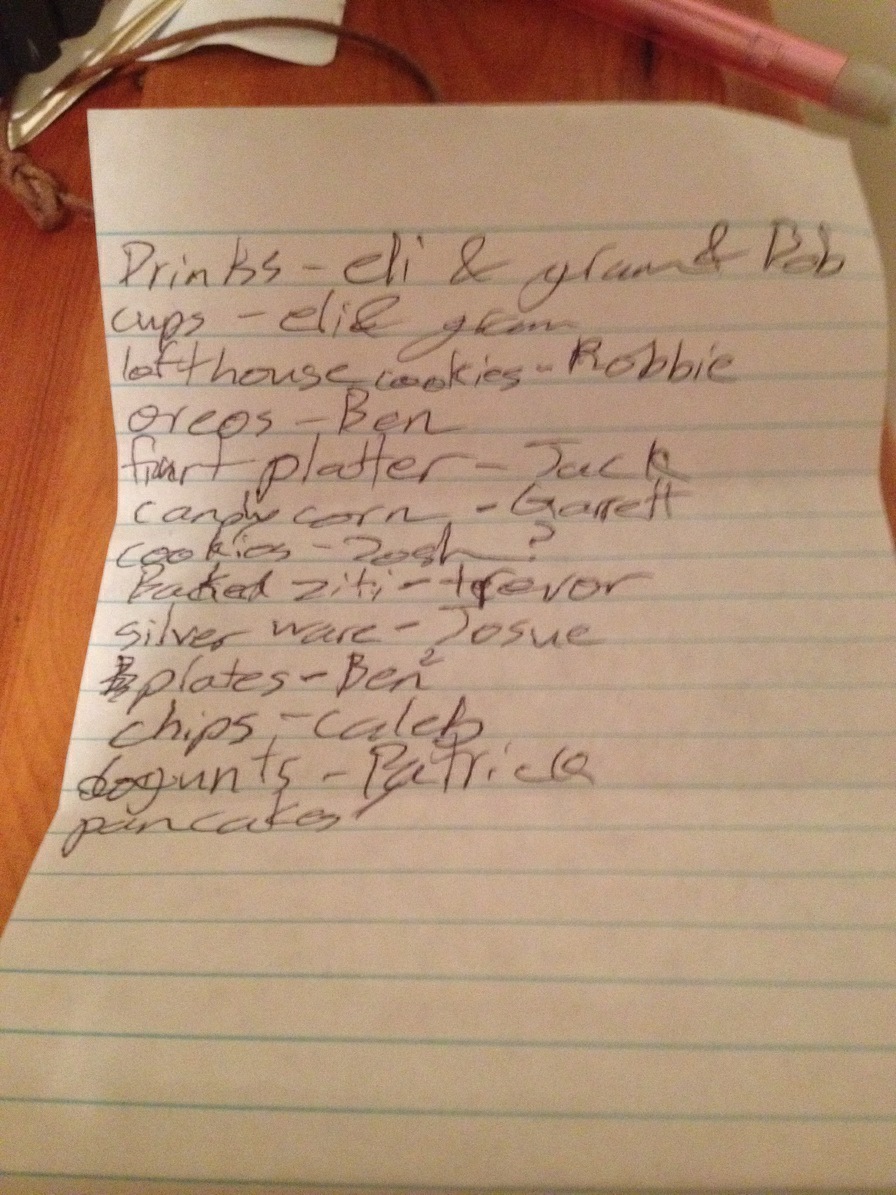 Drinks - eli & gram & Bob
cups - eli & gram
lofthouse cookies - Robbie
oreos - Ben
platter - Jack
candy corn - Garrett
cookies - Josh ?
Baked ziti - trevor
silver ware - Josue
plates - Ben²
chips - caleb
- Patrick
pancakes